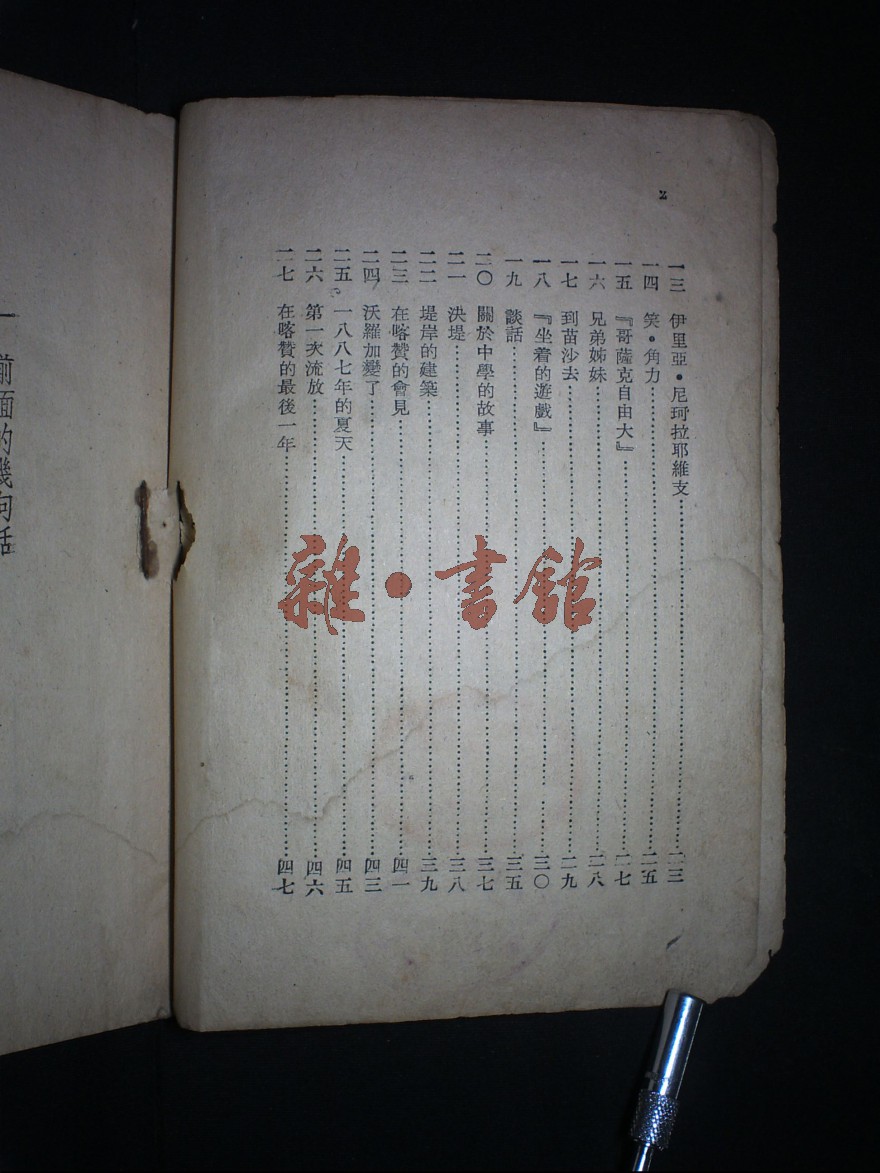 2
一三 伊里亞・尼珂拉耶維支 二三
一四 笑・角力 二五
一五 『哥薩克自由大』 二七
一六 兄弟姊妹 二八
一七 到苗沙去 二九
一八 『坐着的遊戲』 三〇
一九 談話 三五
二〇 關於中學的故事 三七
二一 決堤 三八
二二 堤岸的建築 三九
二三 在喀贊的會見 四一
二四 沃羅加變了 四三
二五 一八八七年的夏天 四五
二六 第一次流放 四六
二七 在喀贊的最後一年 四七
一 前面的幾句話
雜・書館